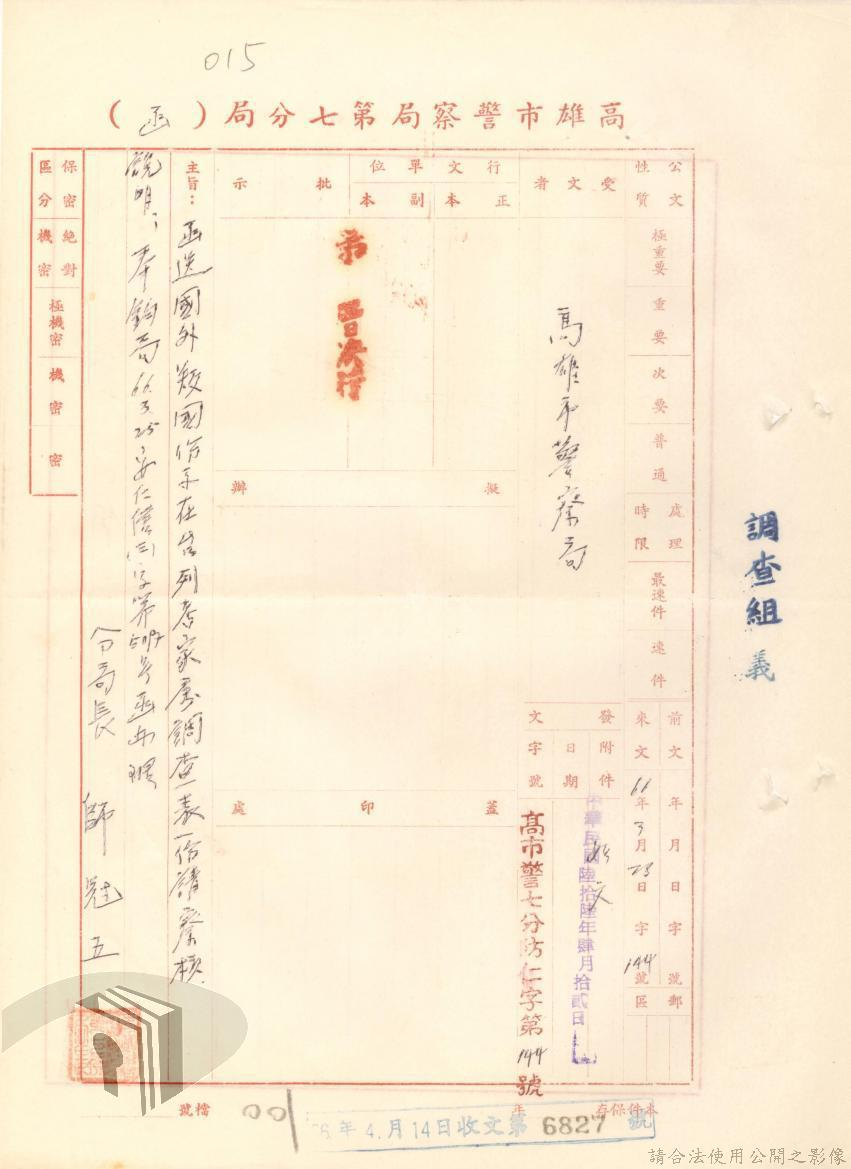 015
高雄市警察局第七分局（函）
公文性質
極重要
重要
次要
普通
處理時限
最速件
速件
前文
來文
66年3月25日
字
144號
年月日字號
郵區
受文者
高雄市警察局
發文
附件
日期
字號
如文
中華民國陸拾陸年肆月拾貳日
高市警七分防仁字第144號
行文單位
正本
副本
批示
決行
擬辦
蓋印處
主旨：函送國外叛國份子在台列考家屬調查表一份請察核
說明：奉鈞局66.3.25安仁
字第
號函辦理
分局長 師冠五
保密區分
絕對機密
極機密
機密
密
調查組 義
本件保存
年
檔號
001
年4月14日收文第6827號
請合法使用公開之影像